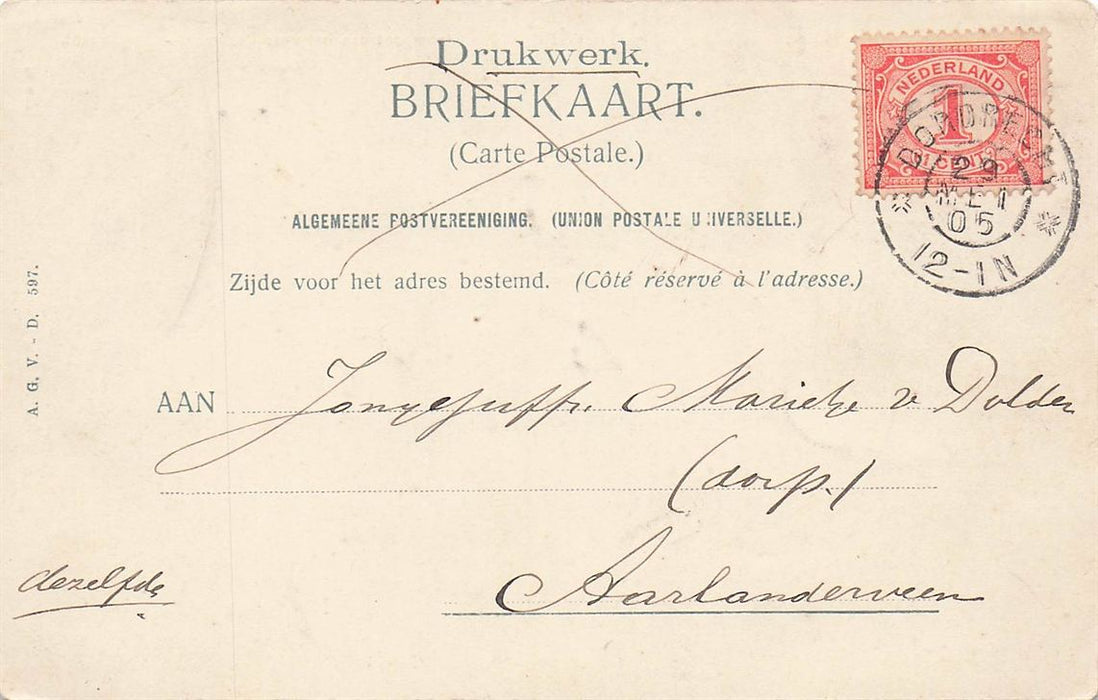 Drukwerk.
BRIEFKAART.
(Carte Postale.)
ALGEMEENE POSTVEREENIGING. (UNION POSTALE UNIVERSELLE.)
Zijde voor het adres bestemd. (Côté réservé à l'adresse.)
NEDERLAND
1
1 CENT
DORDRECHT
29
MEI
05
12-1N
A. G. V. - D. 597.
AAN Jongejuffr. Marietje v Dolder
(dorp.)
Aarlanderveen
dezelfde